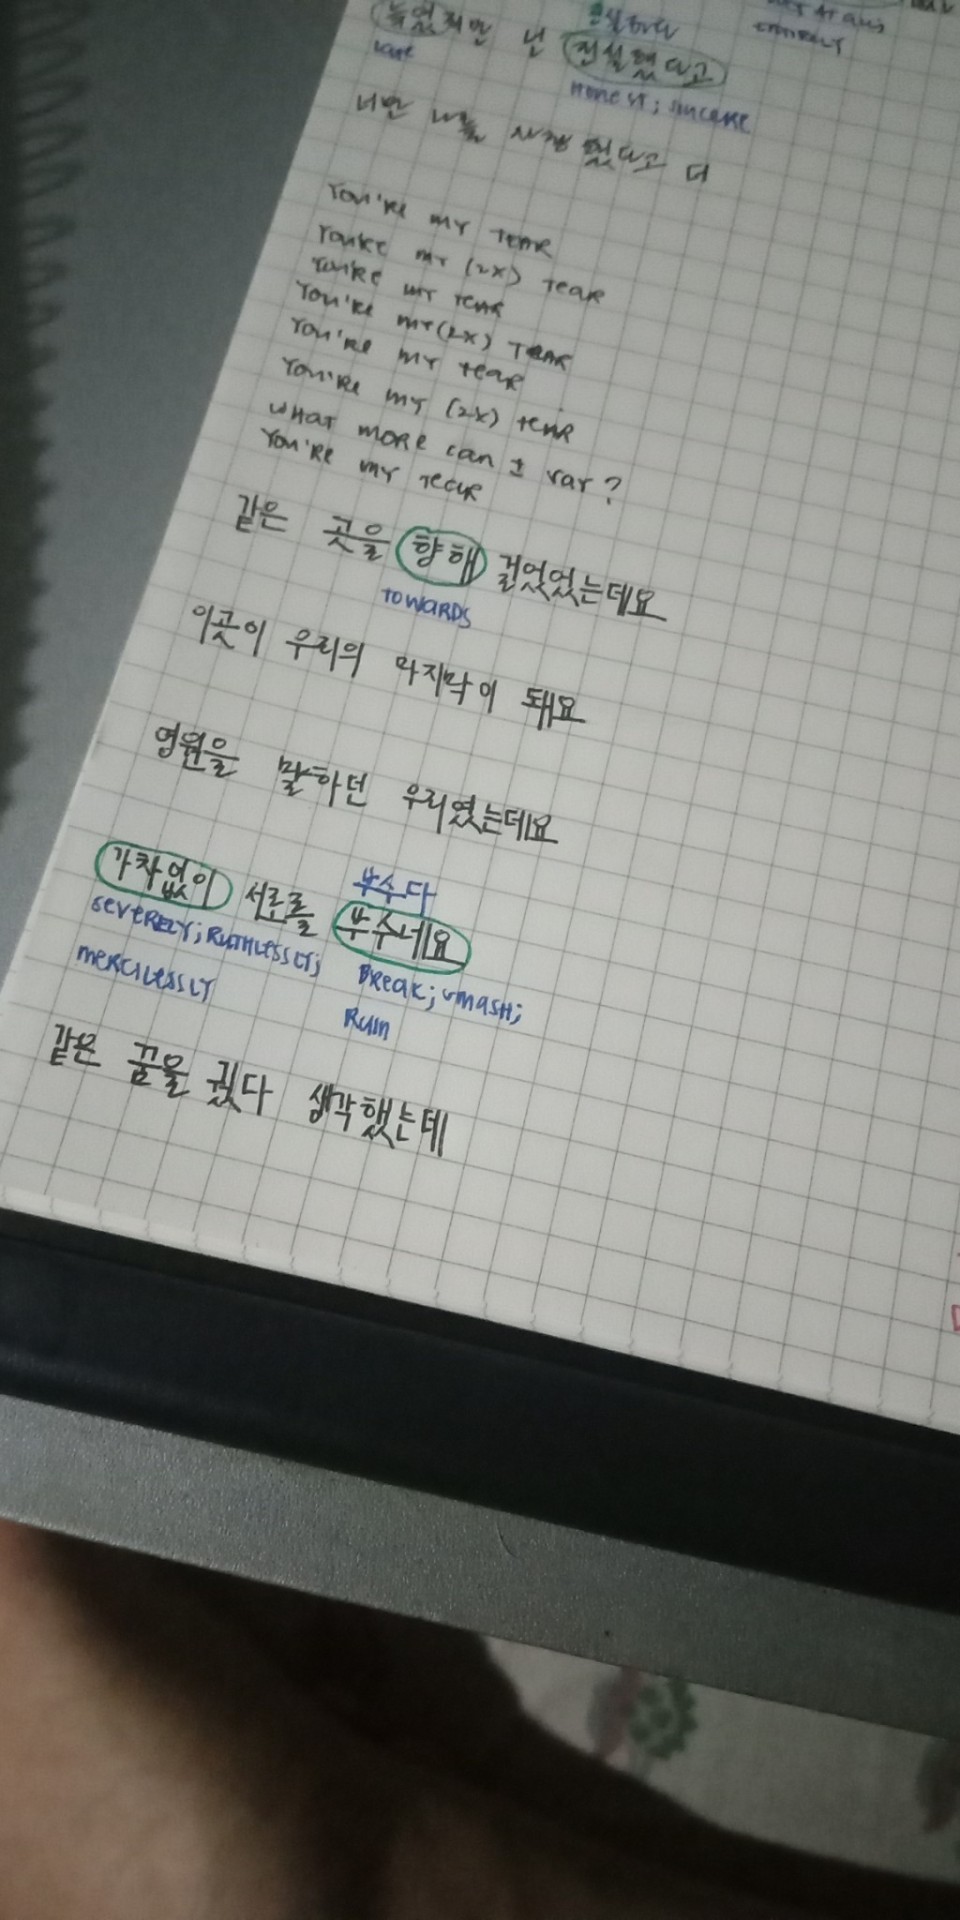 늦었지만 넌 진실했다고
late
HONEST; SINCERE
ENTIRELY
너만 나를 사랑 했다고 더
You're my TEAR
You're my (2x) Tear
You're my tear
You're my (2x) TEAR
You're my tear
You're my (2x) tear
what more can I say?
You're my Tear
같은 곳을 향해 걸었었는데요
TOWARDS
이곳이 우리의 마지막이 돼요
영원을 말하던 우리였는데요
부수다
가차없이 서로를 부수네요
SEVERELY; RUTHLESSLY;
MERCILESSLY
BREAK; SMASH;
Ruin
같은 꿈을 꿨다 생각했는데